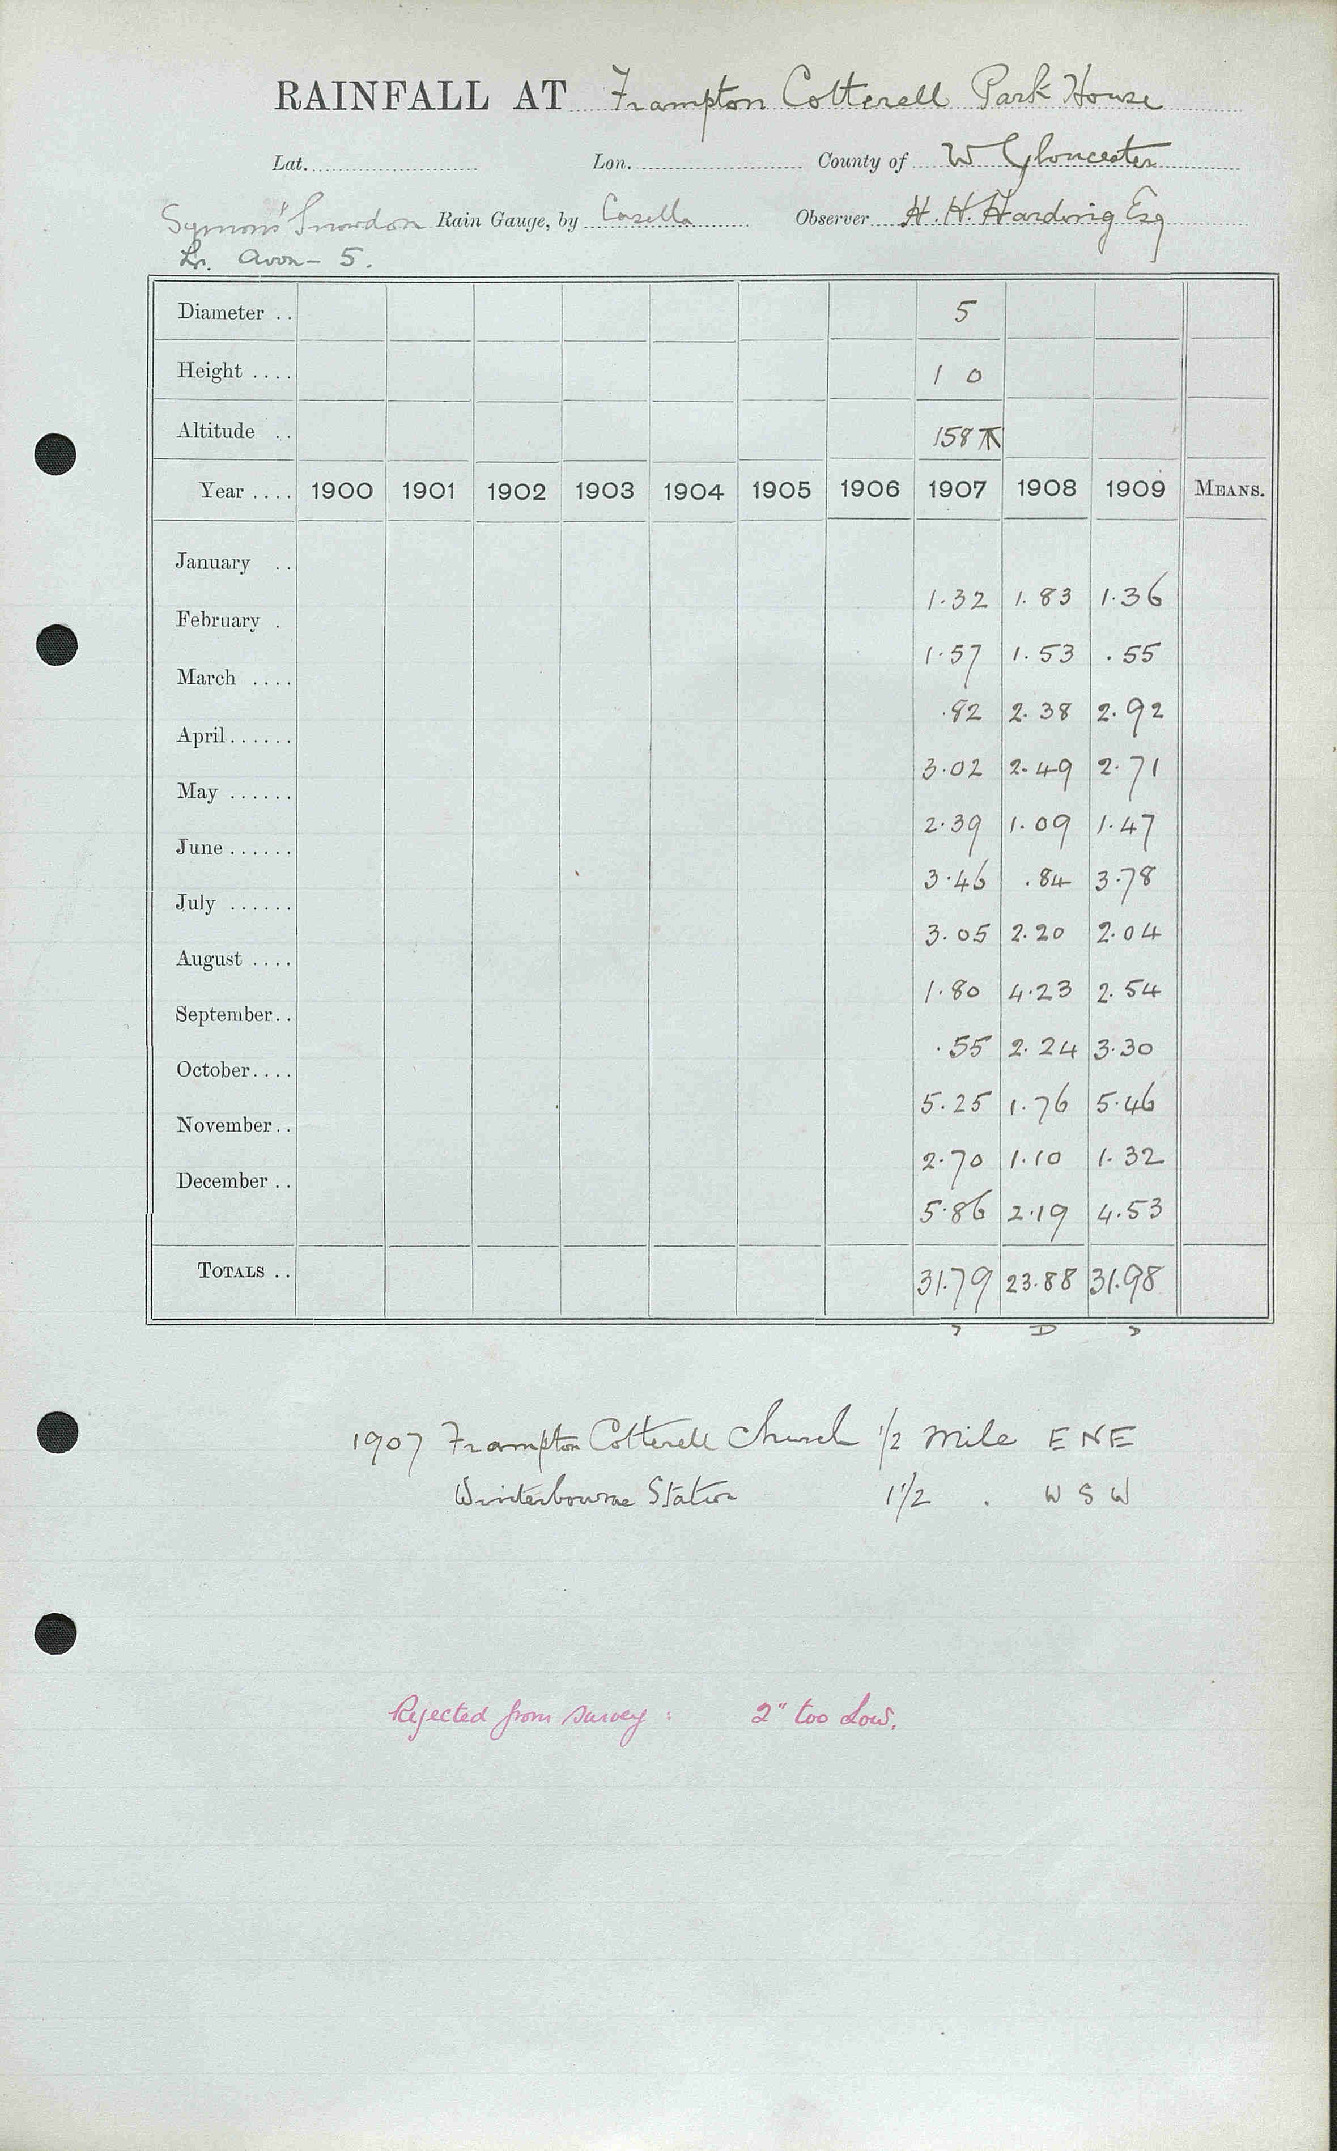 RAINFALL AT Frampton Cotterell Park House
Lat. Lon. County of W Gloucester
Symons' Snowdon Rain Gauge, by Casella Observer H. H. Harding Esq
Lr. Avon - 5.
Diameter .. 5
Height .... 1 0
Altitude .. 158
Year .... 1900 1901 1902 1903 1904 1905 1906 1907 1908 1909 MEANS.
January .. 1.32 1.83 1.36
February . 1.57 1.53 .55
March .... .82 2.38 2.92
April...... 3.02 2.49 2.71
May ...... 2.39 1.09 1.47
June...... 3.46 .84 3.78
July ...... 3.05 2.20 2.04
August .... 1.80 4.23 2.54
September.. .55 2.24 3.30
October.... 5.25 1.76 5.46
November.. 2.70 1.10 1.32
December .. 5.86 2.19 4.53
TOTALS .. 31.79 23.88 31.98
1907 Frampton Cotterell Church 1/2 mile ENE
Winterbourne Station 1 1/2 . W S W
Rejected from survey : 2" too low.